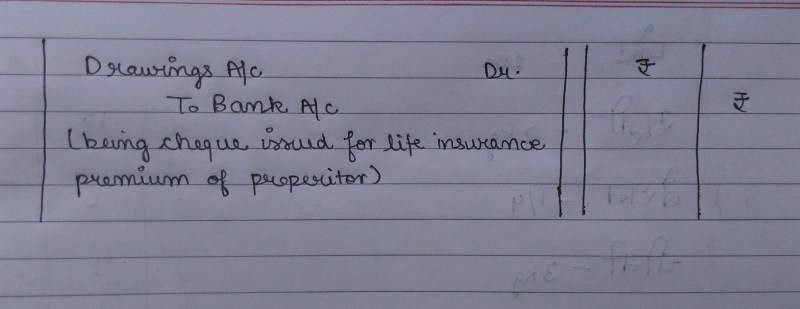 Drawings A/c Dr. ₹
To Bank A/c ₹
(being cheque issued for life insurance
premium of properitor)